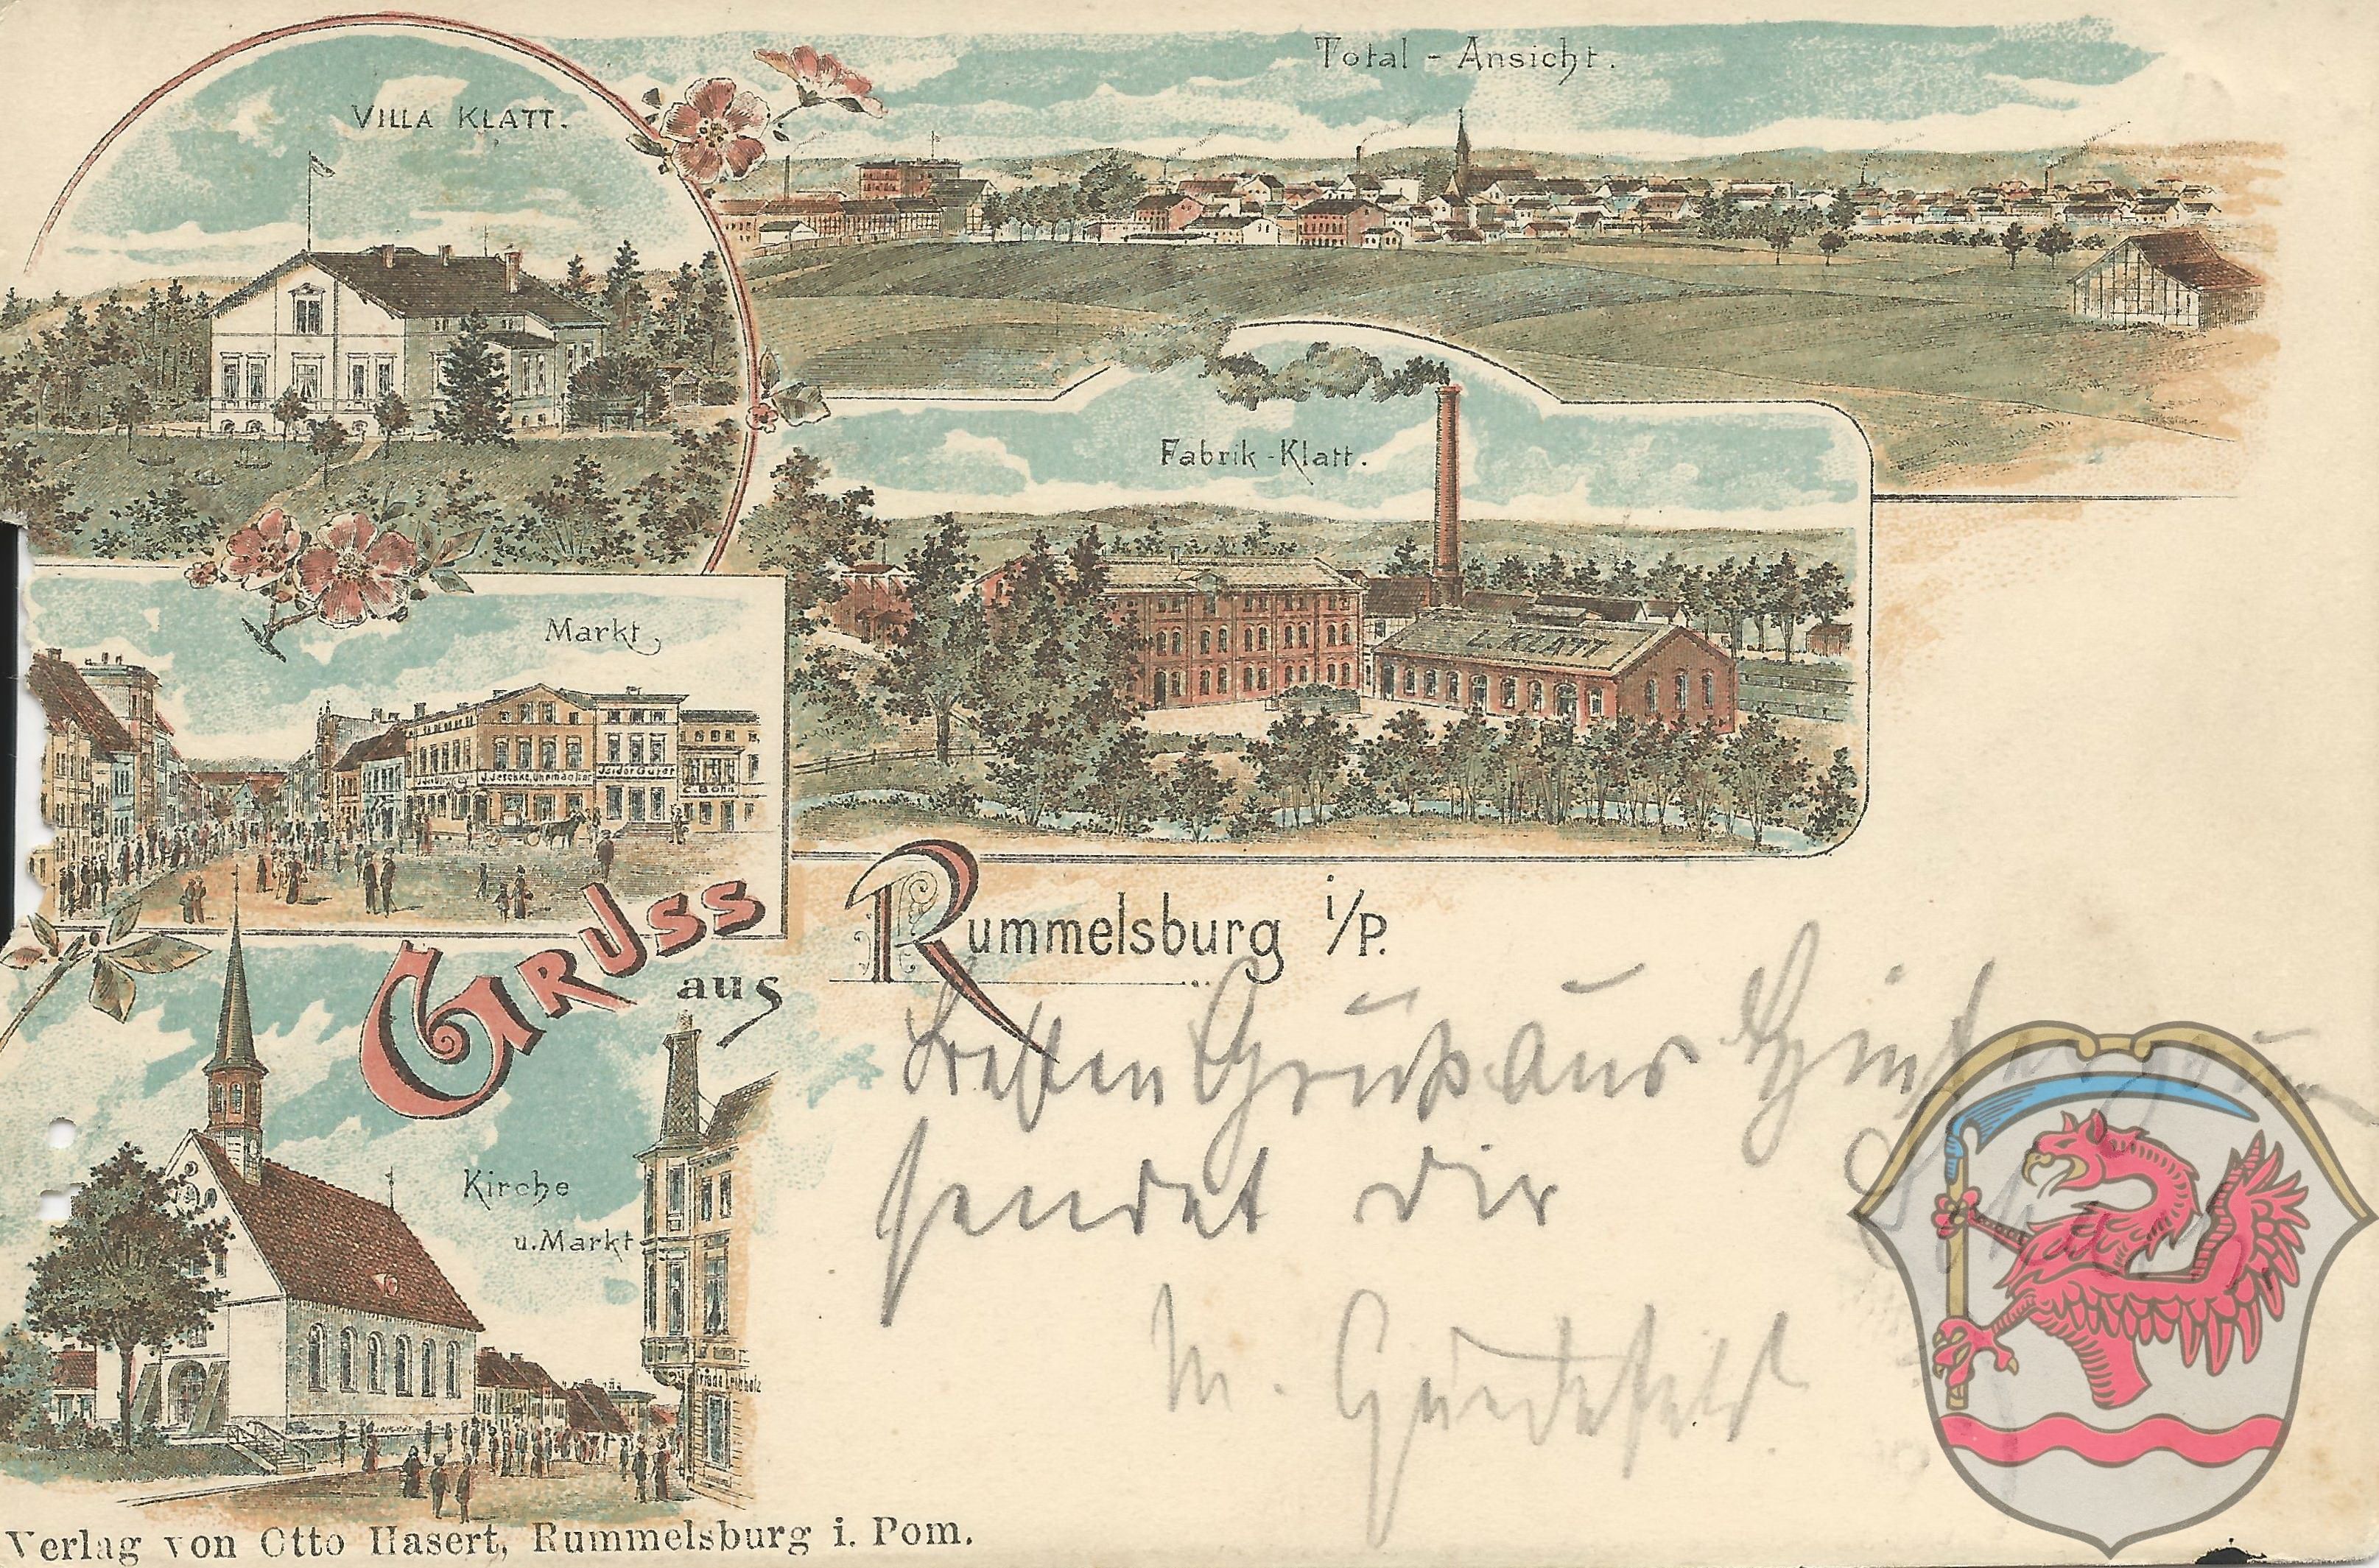 Total - Ansicht.
VILLA KLATT.
Fabrik - Klatt.
L. KLATT
Markt
J. Jeschke, Uhrmacher
Isidor
C. Bohn
GRUSS
aus
Rummelsburg i/P.
Besten Gruß aus
sendet dir
M.
Kirche
u. Markt
Verlag von Otto Hasert, Rummelsburg i. Pom.